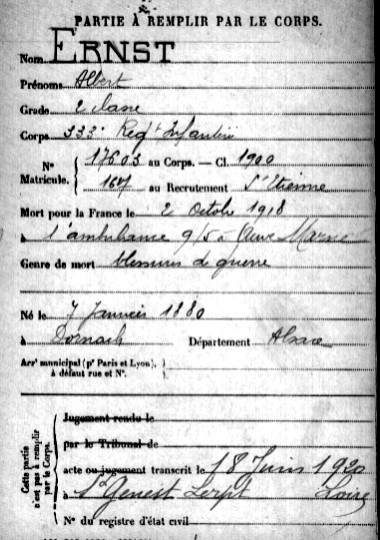 PARTIE À REMPLIR PAR LE CORPS.
Nom ERNST
Prénoms Albert
Grade 2 classe
Corps 333e Regt Infanterie
Nos Matricule. 17603 au Corps. — Cl. 1900
167 au Recrutement St Etienne
Mort pour la France le 2 Octobre 1918
à l'ambulance 9/5 à Marne
Genre de mort blessures de guerre
Né le 7 Janvier 1880
à Dornach Département Alsace
Arrt municipal (pr Paris et Lyon), à défaut rue et No.
Cette partie n'est pas à remplir par le Corps.
Jugement rendu le
par le Tribunal de
acte ou jugement transcrit le 18 Juin 1920
à St Genest Lerpt Loire
No du registre d'état civil